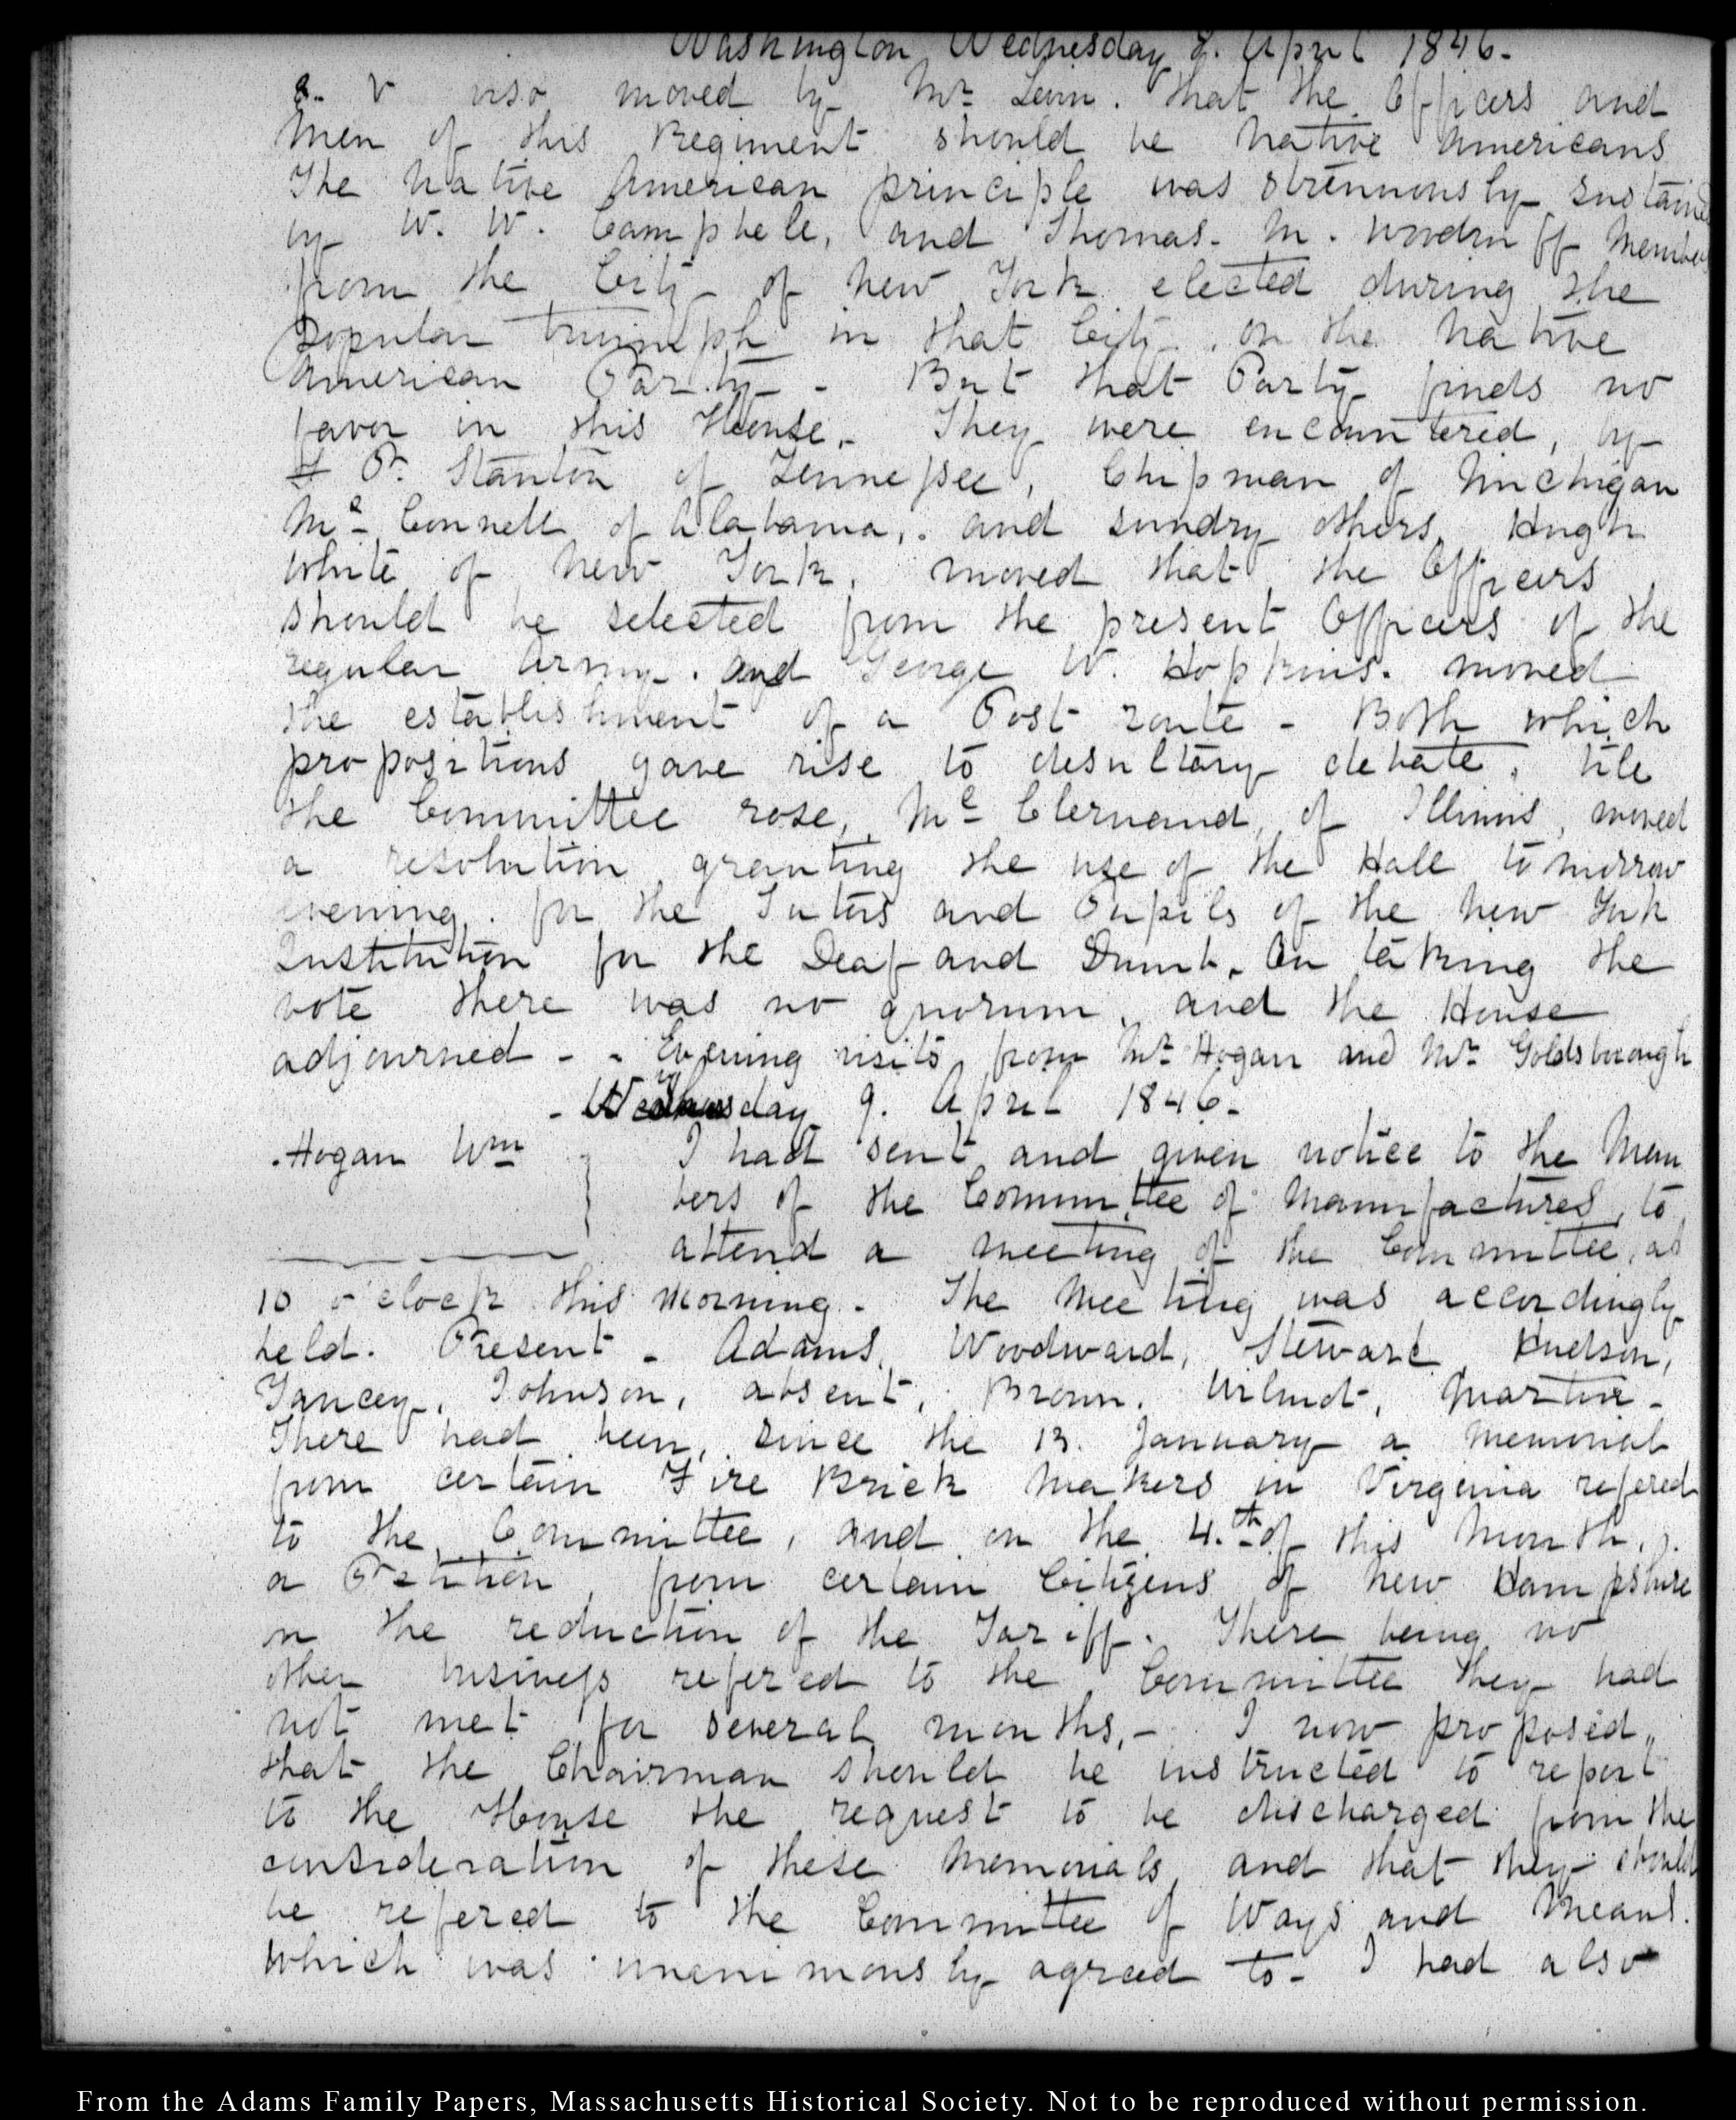 Washington Wednesday 8. April 1846.
8. V viso moved by Mr Levin. that the Officers and
Men of this Regiment should be Native Americans
The Native American principle was strenuously sustained
by W. W. Campbell, and Thomas. M. Woodruff Members
from the City of New York elected during the
popular triumph in that City. on the Native
American Party - But that Party finds no
favor in this House. They were encountered, by
F P. Stanton of Tennessee, Chipman of Michigan
Mc Connell of Alabama, and sundry others. Hugh
White of New York, moved that the Officers
should be selected from the present Officers of the
regular Army. and George W. Hopkins. moved
the establishment of a Post route - Both which
propositions gave rise to desultory debate, till
the Committee rose, Mc Clernand, of Illinois, moved
a resolution granting the use of the Hall tomorrow
evening. for the Tutors and Pupils of the New York
Institution for the Deaf and Dumb. On taking the
vote there was no quorum, and the House
adjourned - - Evening visits from Mr Hogan and Mr Goldsborough
- Thursday 9. April 1846.
Hogan Wm I had sent and given notice to the Mem
bers of the Committee of Manufactures, to
attend a meeting of the Committee, at
10 o'clock this morning. The Meeting was accordingly
held. Present - Adams, Woodward, Stewart Hudson,
Yancey, Johnson, absent, Brown. Wilmot, Martin -
There had been, since the 13. January a Memorial
from certain Fire Brick Makers in Virginia refered
to the Committee, and on the 4.th of this Month,
a Petition, from certain Citizens of New Hampshire
on the reduction of the Tariff. There being no
other business refered to the Committee they had
not met for several months, - I now proposed,
that the Chairman should be instructed to report
to the House the request to be discharged from the
consideration of these Memorials and that they should
be refered to the Committee of Ways and Means.
which was unanimously agreed to - I had also
From the Adams Family Papers, Massachusetts Historical Society. Not to be reproduced without permission.